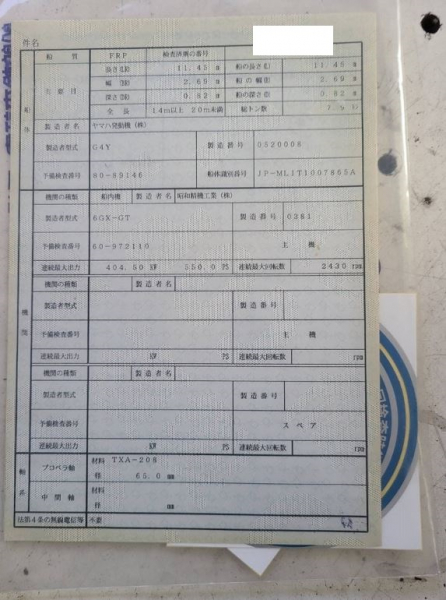 件名
船質 FRP 検査済票の番号
長さ(Lm) 11.45 m 船の長さ(L) 11.45 m
主要目 幅(B) 2.69 m 船の幅(B) 2.69 m
深さ(D) 0.82 m 船の深さ(D) 0.82 m
船体 全長 14m以上 20m未満 総トン数
製造者名 ヤマハ発動機(株)
製造者型式 G4Y 製造番号 0520008
予備検査番号 80-89146 船体識別番号
機関の種類 船内機 製造者名 昭和精機工業(株)
製造者型式 6GX-GT 製造番号 0381
予備検査番号 60-972110 主機
連続最大出力 404.50 kW 550.0 PS 連続最大回転数 2430 rpm
機関の種類 製造者名
製造者型式 製造番号
機関 予備検査番号 主機
連続最大出力 kW PS 連続最大回転数 rpm
機関の種類 製造者名
製造者型式 製造番号
予備検査番号 スペア
連続最大出力 kW PS 連続最大回転数 rpm
軸系 プロペラ軸 材料 TXA-208
径 65.0 mm
中間軸 材料
径 mm
法第4条の無線電信等 不要